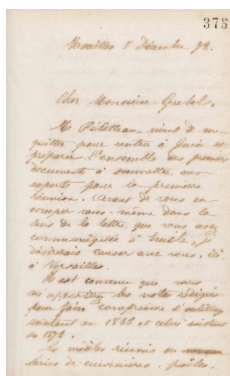 375
Versailles 8 Décembre 72.
Cher Monsieur Grebel.
M. Péletteau vient de me
quitter pour rentrer à Guise et
préparer l'ensemble des premiers
documents à soumettre aux
experts pour la première
réunion. Avant de vous en
occuper vous-même dans le
sens de la lettre que vous avez
communiquée à Émile, je
désirerais causer avec vous, ici
à Versailles.
Il est convenu que vous
m'apporterez les notes rédigées
pour faire comprendre l'outillage
existant en 1865 et celui existant
en 1872.
Les modèles réunis en
séries de cuisinières, poêles,